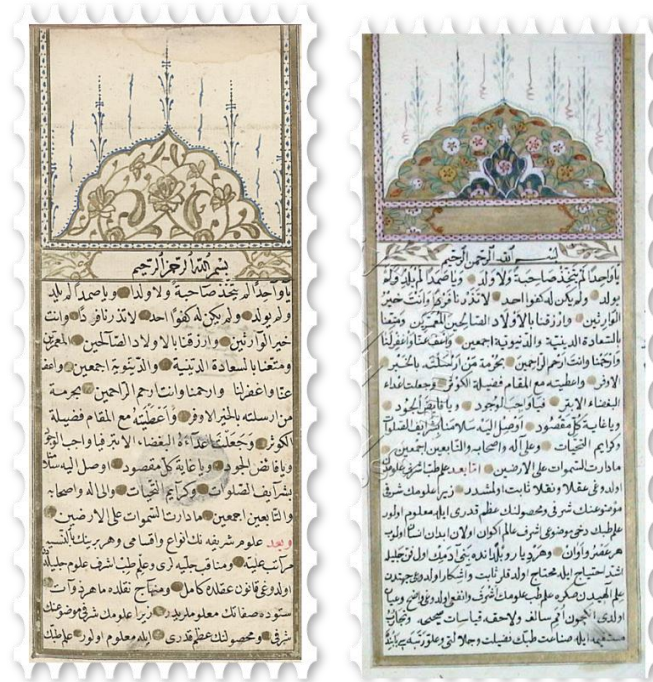 بسم الله الرحمن الرحيم
يا واحدا لم يتخذ صاحبة ولا ولدا ويا صمدا لم يلد
ولم يولد ولم يكن له كفوا احد لا تذرنا فردا وانت
خير الوارثين وارزقنا بالاولاد الصالحين المعمرين
ومتعنا بالسعادة الدينية والدنيوية اجمعين واعف
عنا واغفر لنا وارحمنا وانت ارحم الراحمين بحرمة
من ارسلته بالخير الاوفر واعطيته مع المقام فضيلة
الكوثر وجعلت اعداءه البغضاء الابتر فيا واجب الوجود
ويا فائض الجود ويا غاية كل مقصود اوصل اليه
بشرايف الصلوات وكرايم التحيات والى اله واصحابه
والتابعين اجمعين مادارت السموات على الارضين
وبعد علوم شريفه نك انواع واقسامى وهر برينك بالتقسيم
مراتب عليه ومناقب جليه لرى وعلم طب اشرف علوم جليله
اولدوغى قانون عقلده كامل ومنهاج نقلده ماهر ذوات
ستوده صفاتك معلوملريدر زيرا علومك شرفى موضوعنك
شرفى ومحصولنك عظم قدرى ايله معلوم اولور علم طبك
بسم الله الرحمن الرحيم
يا واحدا لم يتخذ صاحبة ولا ولدا ويا صمدا لم يلد ولم
يولد ولم يكن له كفوا احد لا تذرنا فردا وانت خير
الوارثين وارزقنا بالاولاد الصالحين المعمرين ومتعنا
بالسعادة الدينية والدنيوية اجمعين واعف عنا واغفر لنا
وارحمنا وانت ارحم الراحمين بحرمة من ارسلته بالخير
الاوفر واعطيته مع المقام فضيلة الكوثر وجعلت اعداء
البغضاء الابتر فيا واجب الوجود ويا فائض الجود
ويا غاية كل مقصود اوصل اليه سلامنا بشرايف الصلاة
وكرايم التحيات وعلى اله واصحابه والتابعين اجمعين
مادارت السموات على الارضين اما بعد علم طب اشرف علوم
اولدوغى عقلا ونقلا ثابت اولمشدر زيرا علومك شرفى
موضوعنك شرفى ومحصولنك عظم قدرى ايله معلوم اولور
علم طبك دخى موضوعى اشرف عالم اكوان اولان ابدان انسان اولوب
هر عصر واوان وهر ديار وبلدانده بنى ادمك اولا
اشد احتياج ايله محتاج اولدقلر ثابت واشكار اولدوغى
علم طب علومك اشرف وانفع اولدوغى واضح وعيان
اولدى انجون امم سالف ولاحقه قياسات صحيحه وتجارب
مستقيمه ايله صناعت طبك فضيلت وجلالتى وعلو رتبه